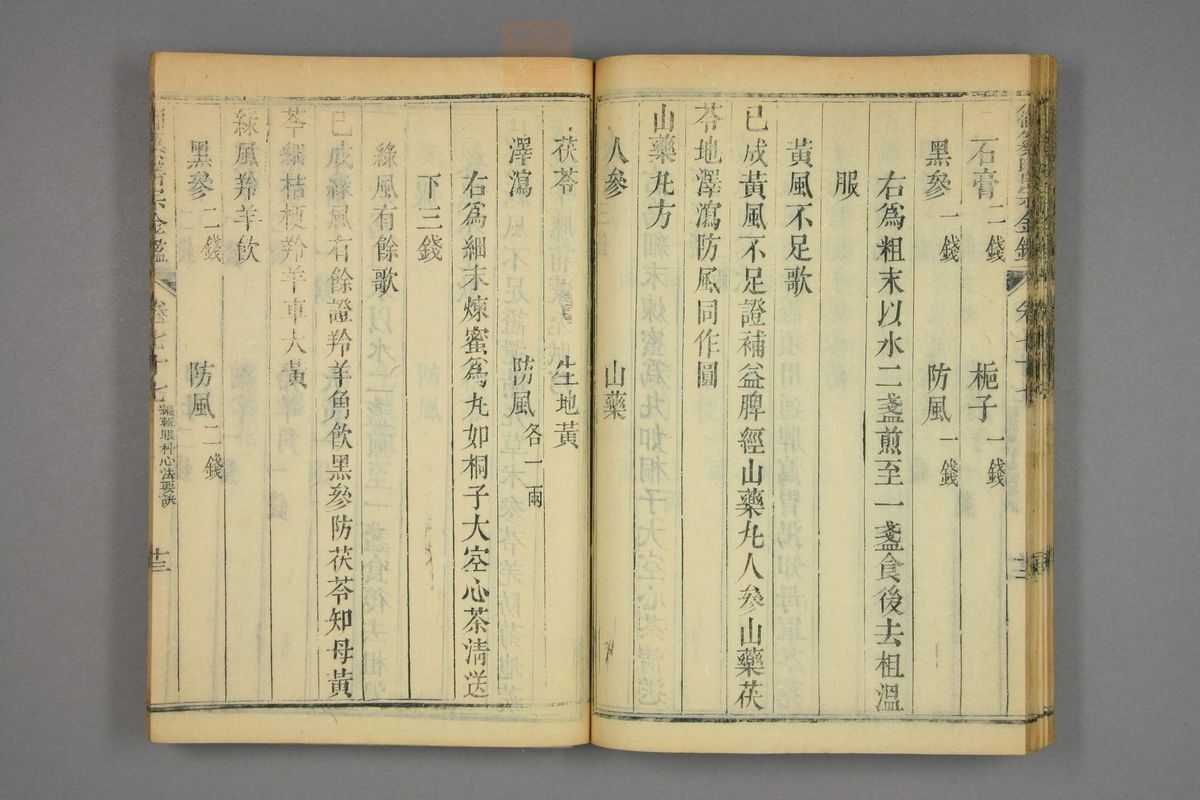 石膏二錢 梔子一錢
黑參一錢 防風一錢
右爲粗末以水二盞煎至一盞食後去柤溫
服
黃風不足歌
已成黃風不足證補益脾經山藥丸人參山藥茯
苓地澤瀉防風同作圓
山藥丸方
人參 山藥
茯苓 生地黃
澤瀉 防風各一兩
右爲細末煉蜜爲丸如桐子大空心茶淸送
下三錢
綠風有餘歌
已成綠風有餘證羚羊角飲黑參防茯苓知母黃
芩細桔梗羚羊車大黃
綠風羚羊飲
黑參二錢 防風二錢
醫宗金鑑 卷七十七 編輯眼科心法要訣 十三